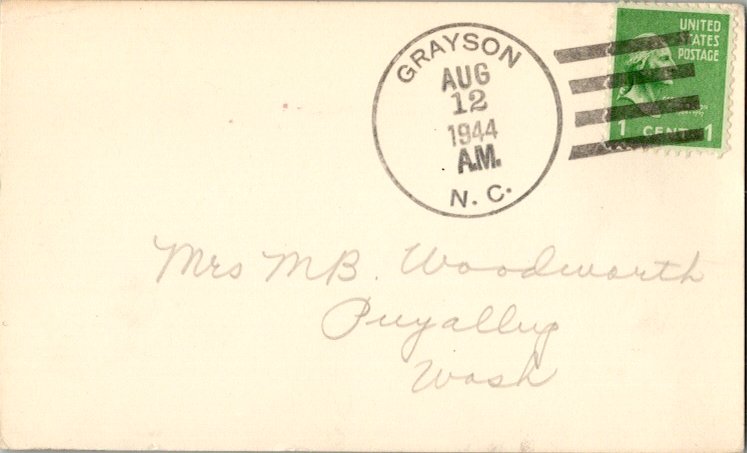 GRAYSON
AUG
12
1944
A.M.
N. C.
UNITED
STATES
POSTAGE
1 CENT 1
Mrs M B. Woodworth
Puyallup
Wash